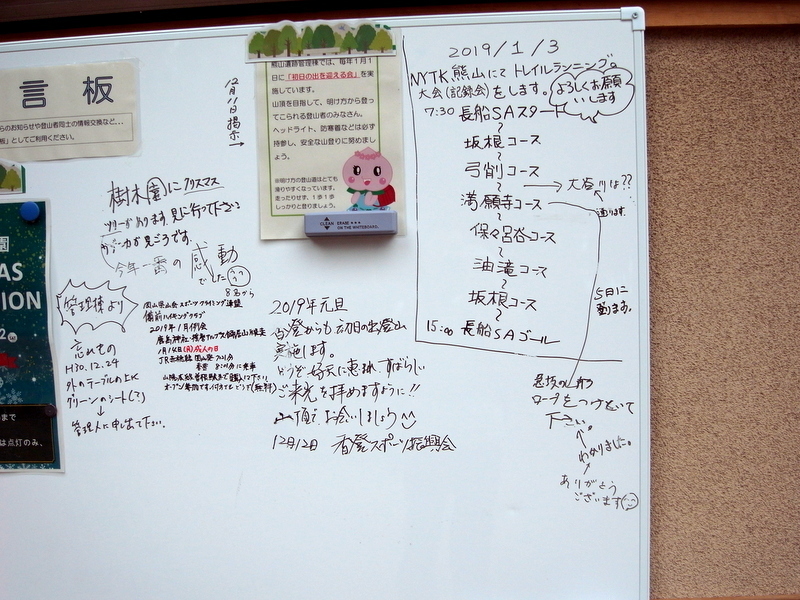 言板
らのお知らせや登山者同士の情報交換など…
板」としてご利用ください。
12月11日掲示→
熊山遺跡管理棟では、毎年1月1
日に「初日の出を迎える会」を実
施しています。
山頂を目指して、明け方から登っ
てこられる登山者のみなさん。
ヘッドライト、防寒着などは必ず
持参し、安全な山登りに努めまし
ょう。
※明け方の登山道はとても
滑りやすくなっています。
走ったりせず、1歩1歩
しっかりと登りましょう。
CLEAN ERASE
ON THE WHITEBOARD.
樹木園にクリスマス
ツリーがあります。見に行って下さい
今年一番の感動
でした
管理棟より
忘れもの
H30.12.24
外のテーブルの上に
グリーンのシート(?)
↓
管理人に申し出て下さい。
岡山県山岳スポーツクライミング連盟
備前ハイキングクラブ
2019年1月例会
1月14日(月)成人の日
2019年元旦
香登からも初日の出登山
実施します。
どうぞ好天に恵まれすばらしい
ご来光を拝めますように!!
山頂でお会いしましょう
12月12日 香登スポーツ振興会
2019/1/3
NYTK熊山にてトレイルランニング。
大会(記録会)をします。
よろしくお願
いします
7:30 長船SAスタート
坂根コース
弓削コース
→大谷りは??
満願寺コース
通ります。
保々呂谷コース
油滝コース
坂根コース
15:00 長船SAゴール
5日に
登ります。
ロープをつけといて
下さい。
わかりました。
ありがとう
ございます
AS
ION
まで
は点灯のみ、